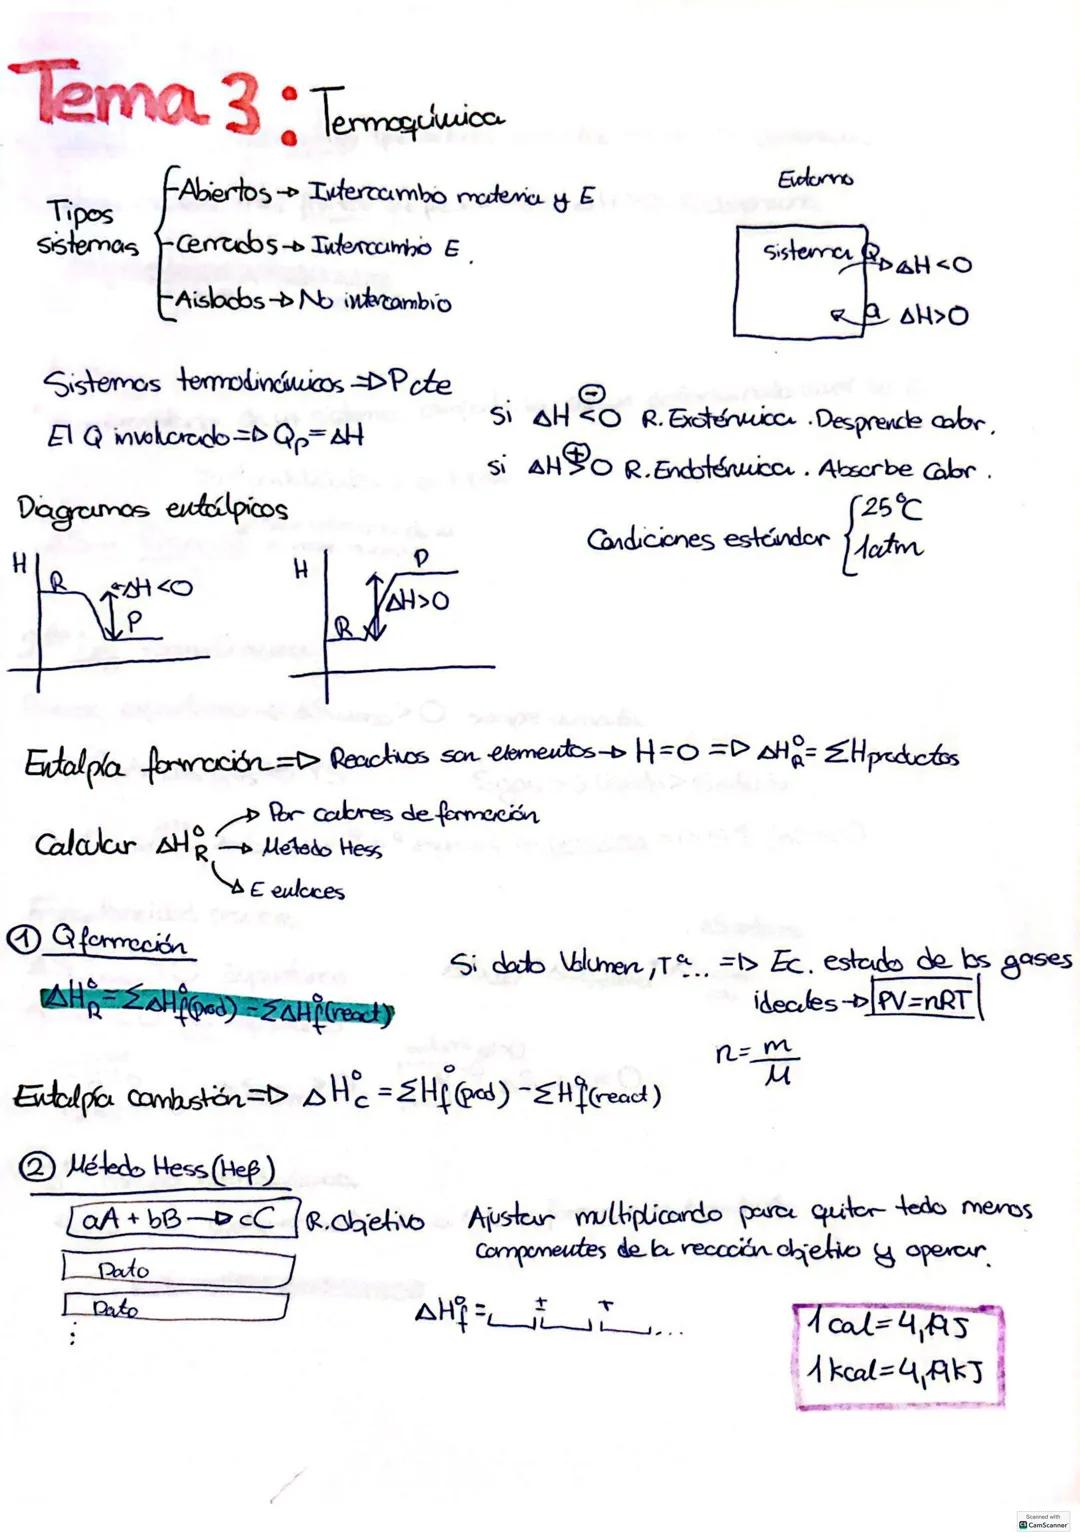 Tema 3: Termoquímica
Tipos sistemas
Abiertos → Intercambio materia y E
Cerrados → Intercambio E.
Aislados → No intercambio
Entorno
Sistema Q → ΔH<0
Q ΔH>0
Sistemas termodinámicos ⇒ P cte
El Q involucrado ⇒ Qp = ΔH
si ΔH <0 R. Exotérmica. Desprende calor.
⊖
si ΔH >0 R. Endotérmica. Absorbe calor.
⊕
Diagramas entálpicos
Condiciones estándar { 25°C
1atm
H R ΔH<0 P
H R ΔH>0 P
Entalpía formación ⇒ Reactivos son elementos → H=0 ⇒ ΔH°R = ΣHproductos
Calcular ΔH°R
→ Por calores de formación
→ Método Hess
→ E enlaces
① Qformación
ΔH°R = ΣΔH°f(prod) - ΣΔH°f(react)
Si dato Volumen, Tª... ⇒ Ec. estado de los gases
ideales → PV=nRT
n = m/M
Entalpía combustión ⇒ ΔH°c = ΣH°f(prod) - ΣH°f(react)
② Método Hess (Heβ)
aA + bB → cC R. objetivo
Dato
Dato
⋮
Ajustar multiplicando para quitar todo menos
componentes de la reacción objetivo y operar.
ΔH°f = __ ± __ + __...
1 cal = 4,19J
1 kcal = 4,19kJ
Scanned with
CS CamScanner